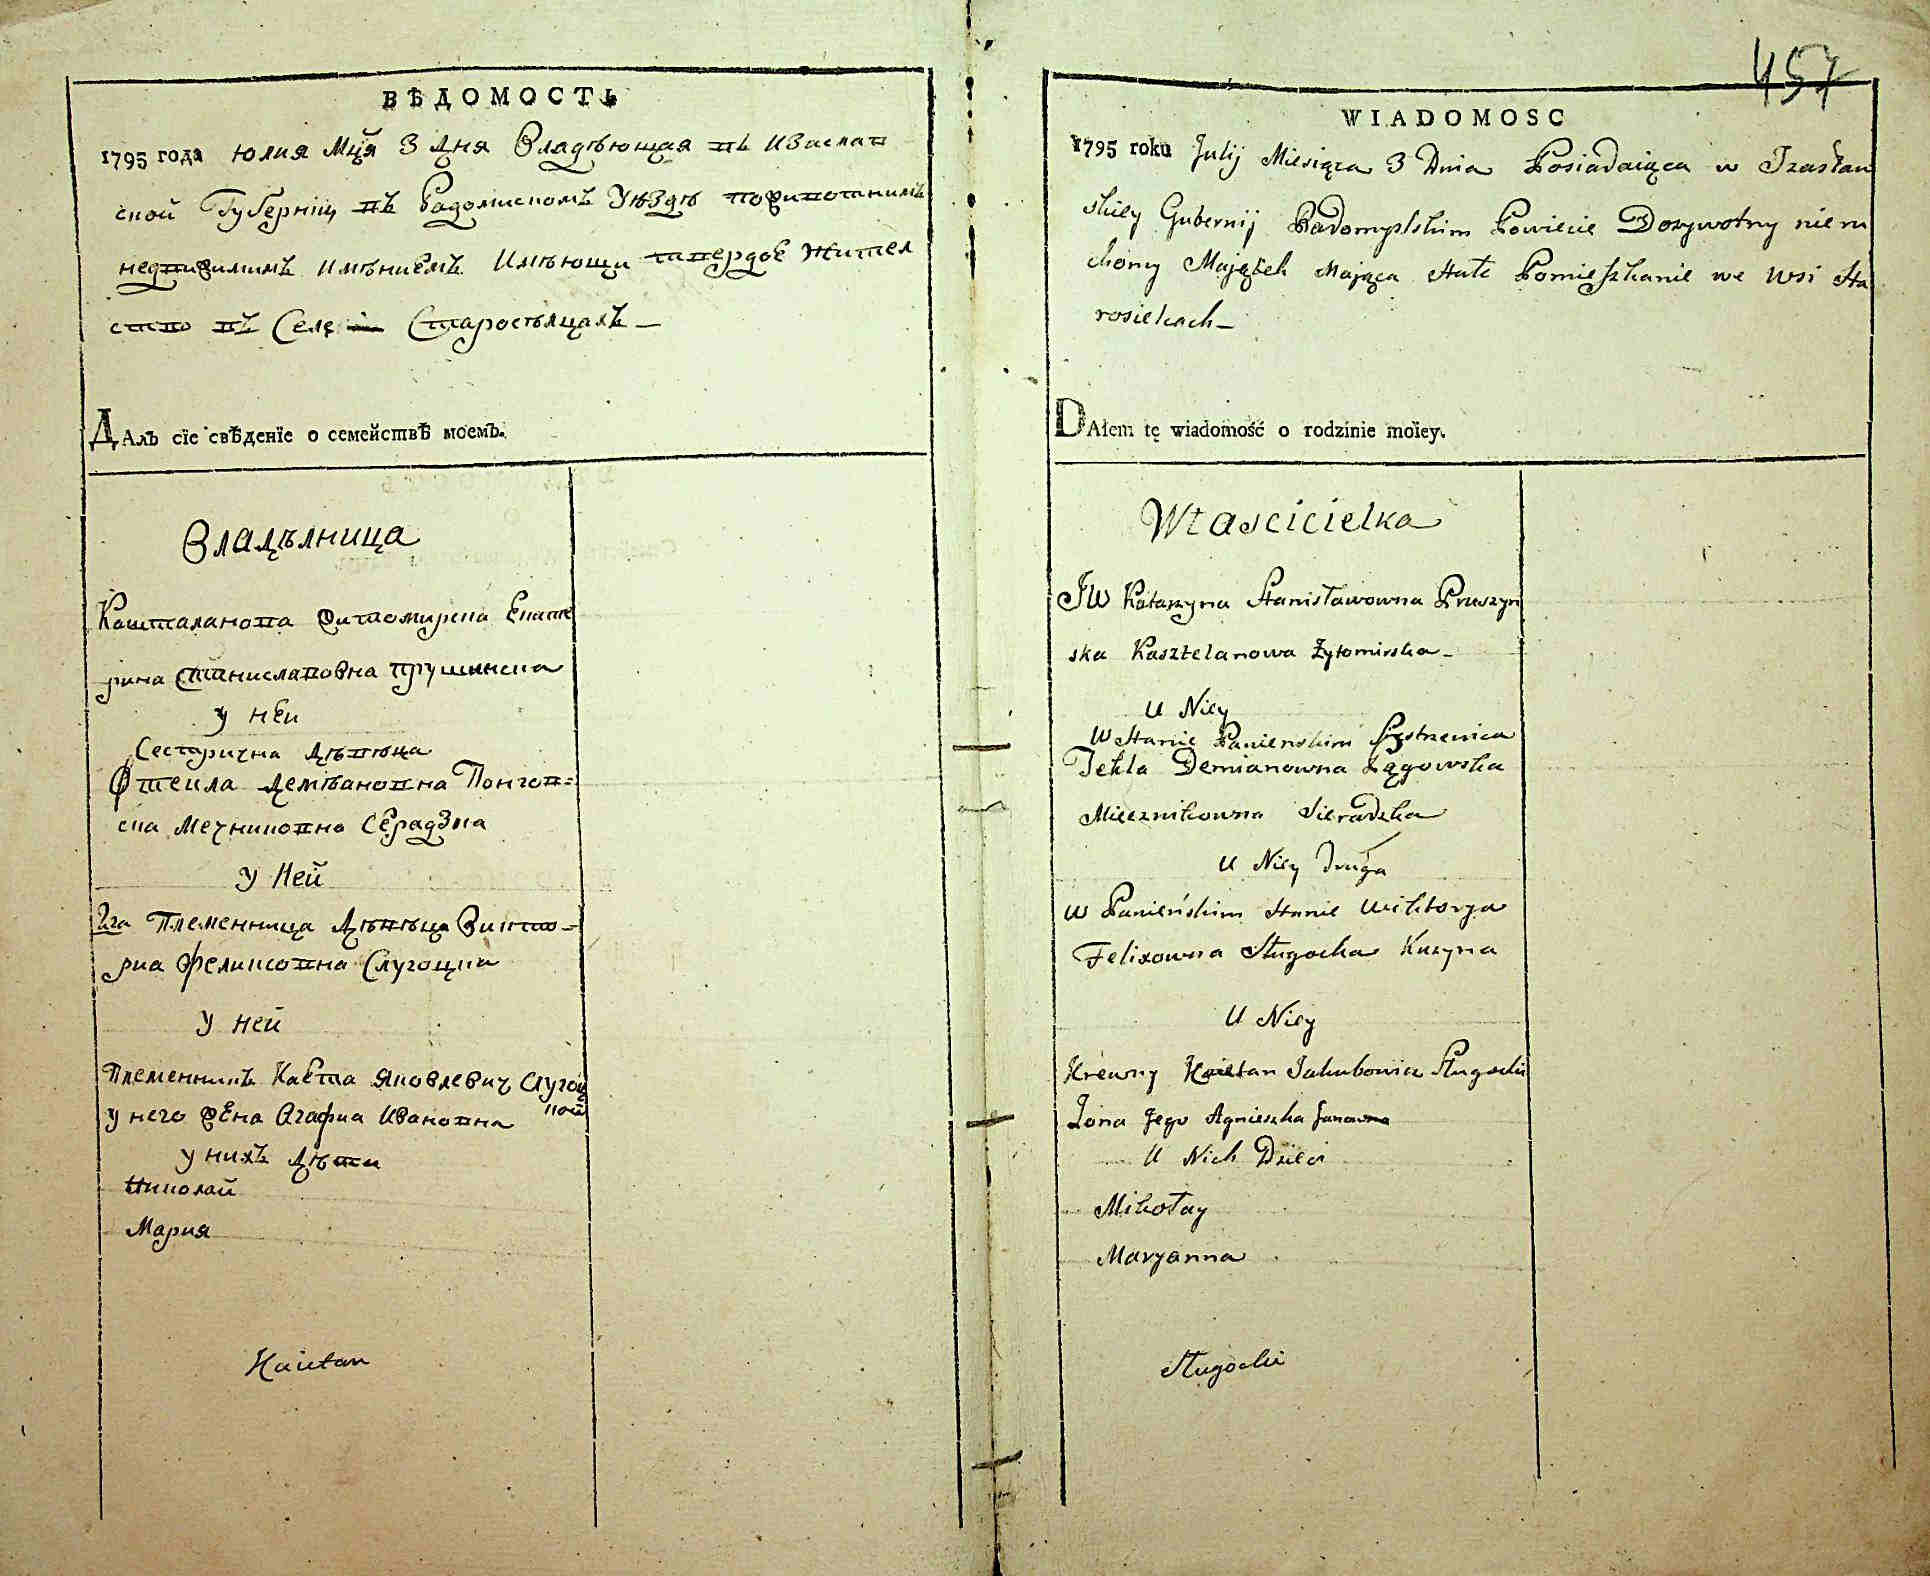 ВѢДОМОСТЬ
1795 года юлия мця 3 дня Владѣющая въ Изаслав
ской Губерніи въ Радомискомъ Уѣздѣ
недвижимимъ имѣниемъ имѣющи жител
ство въ Селе Старосѣлцахъ
ДАлъ сїе свѣденїе о семействѣ моемъ.
Владѣлница
Кашталанова житомирска Екате
рина Станиславовна Прушинска
у неи
Сестрична дѣвица
Фтекла Демѣановна
Мечниковна Серадзка
у Ней
2га Племенница дѣвѣца Викто-
риа Феликсовна Слугоцка
у ней
Племенникъ Каета Яковлевич Слугоц
кой
у него жена Агафиа Ивановна
у нихъ дѣти
Николай
Мария
Kaietan
457
WIADOMOSC
1795 roku Julij Miesiąca 3 Dnia Posiadaiąca w Izasław
skiey Gubernij Radomyslskim Powiecie Dozywotny nieru
chomy Majątek Mająca Stałe Pomieszkanie we Wsi Sta
rosielcach
DAłem tę wiadomość o rodzinie moiey.
Własicielka
JW Katarzyna Stanisławowna Pruszyn
ska Kasztelanowa Zytomirska
U Niey
W Stanie Panienskim Systrzenica
Tekla Demianowna Łągowska
Miecznikowna Sieradzka
U Niey Druga
W Panieńskim Stanie Wiktorya
Felixowna Sługocka Kuzyna
U Niey
Krewny Kaietan Jakubowicz Sługocki
Zona Jego Agnieszka Janowna
U Nich Dzieci
Mikołay
Maryanna
Sługocki